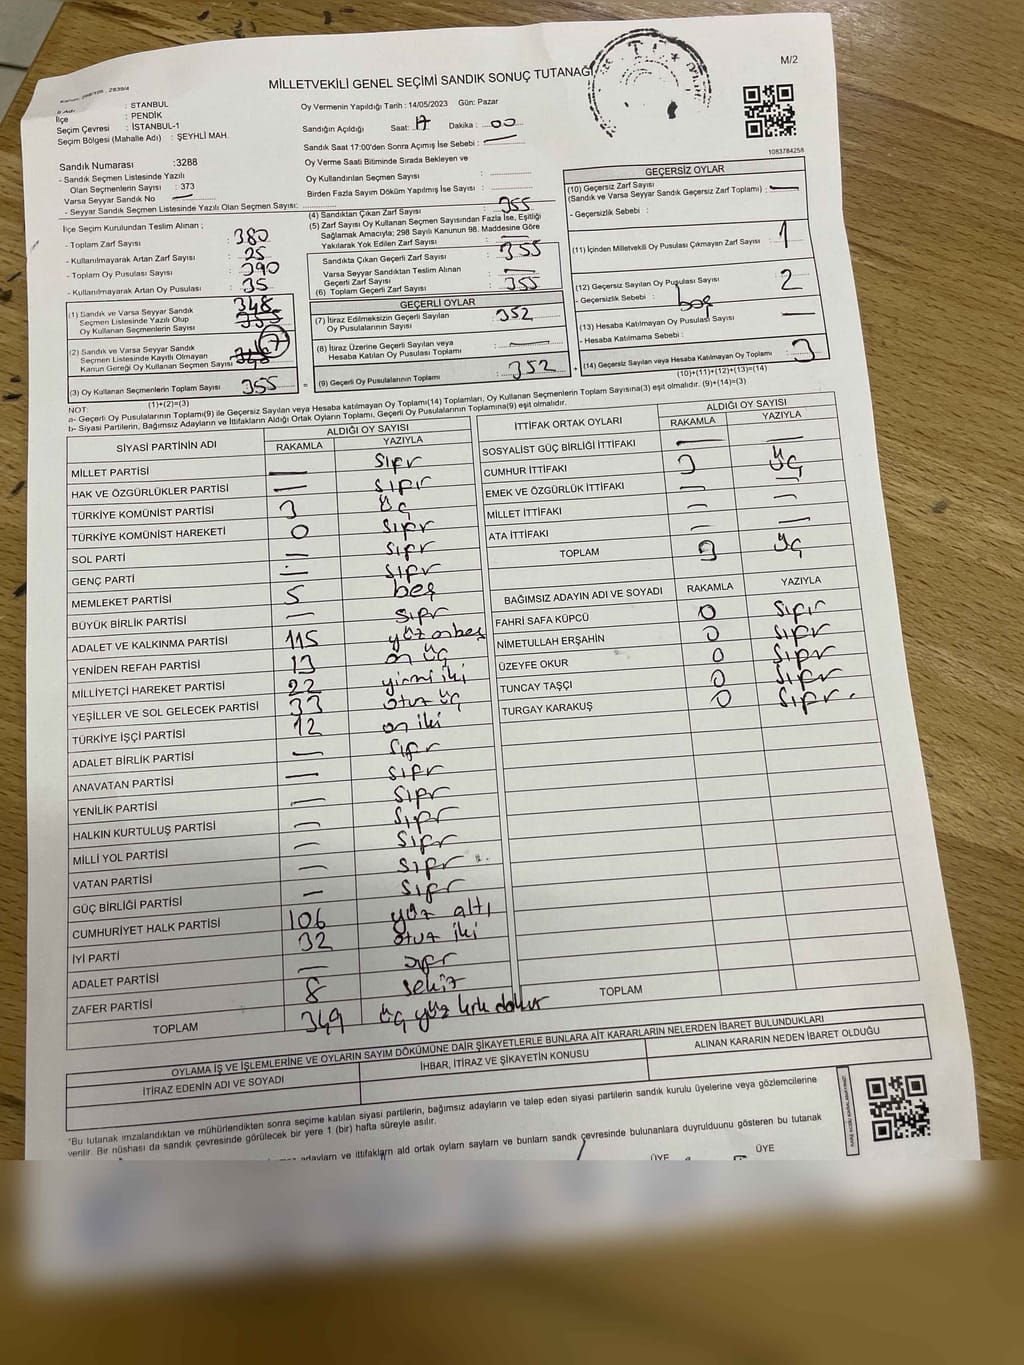 MİLLETVEKİLİ GENEL SEÇİMİ SANDIK SONUÇ TUTANAĞI
M/2
: İSTANBUL
İlçe : PENDİK
Seçim Çevresi : İSTANBUL-1
Seçim Bölgesi (Mahalle Adı) : ŞEYHLİ MAH.
Oy Vermenin Yapıldığı Tarih : 14/05/2023 Gün: Pazar
Sandığın Açıldığı Saat: 17 Dakika : 00
Sandık Saat 17:00'den Sonra Açımış İse Sebebi : —
Oy Verme Saati Bitiminde Sırada Bekleyen ve
Oy Kullandırılan Seçmen Sayısı :
Birden Fazla Sayım Döküm Yapılmış İse Sayısı :
1083784258
Sandık Numarası :3288
- Sandık Seçmen Listesinde Yazılı
Olan Seçmenlerin Sayısı : 373
Varsa Seyyar Sandık No —
- Seyyar Sandık Seçmen Listesinde Yazılı Olan Seçmen Sayısı:
İlçe Seçim Kurulundan Teslim Alınan ;
- Toplam Zarf Sayısı : 380
- Kullanılmayarak Artan Zarf Sayısı : 25
- Toplam Oy Pusulası Sayısı : 390
- Kullanılmayarak Artan Oy Pusulası : 35
(1) Sandık ve Varsa Seyyar Sandık
Seçmen Listesinde Yazılı Olup
Oy Kullanan Seçmenlerin Sayısı : 348
(2) Sandık ve Varsa Seyyar Sandık
Seçmen Listesinde Kayıtlı Olmayan
Kanun Gereği Oy Kullanan Seçmen Sayısı : 7
(3) Oy Kullanan Seçmenlerin Toplam Sayısı : 355
(1)+(2)=(3)
(4) Sandıktan Çıkan Zarf Sayısı : 355
(5) Zarf Sayısı Oy Kullanan Seçmen Sayısından Fazla İse, Eşitliği
Sağlamak Amacıyla; 298 Sayılı Kanunun 98. Maddesine Göre
Yakılarak Yok Edilen Zarf Sayısı : —
Sandıkta Çıkan Geçerli Zarf Sayısı : 355
Varsa Seyyar Sandıktan Teslim Alınan
Geçerli Zarf Sayısı : —
(6) Toplam Geçerli Zarf Sayısı : 355
GEÇERLİ OYLAR
(7) İtiraz Edilmeksizin Geçerli Sayılan
Oy Pusulalarının Sayısı : 352
(8) İtiraz Üzerine Geçerli Sayılan veya
Hesaba Katılan Oy Pusulası Toplamı : —
(9) Geçerli Oy Pusulalarının Toplamı : 352
GEÇERSİZ OYLAR
(10) Geçersiz Zarf Sayısı
(Sandık ve Varsa Seyyar Sandık Geçersiz Zarf Toplamı) : —
- Geçersizlik Sebebi :
(11) İçinden Milletvekili Oy Pusulası Çıkmayan Zarf Sayısı : 1
(12) Geçersiz Sayılan Oy Pusulası Sayısı : 2
- Geçersizlik Sebebi : boş
(13) Hesaba Katılmayan Oy Pusulası Sayısı : —
- Hesaba Katılmama Sebebi :
(14) Geçersiz Sayılan veya Hesaba Katılmayan Oy Toplamı : 3
(10)+(11)+(12)+(13)=(14)
NOT:
a- Geçerli Oy Pusulalarının Toplamı(9) ile Geçersiz Sayılan veya Hesaba katılmayan Oy Toplamı(14) Toplamları, Oy Kullanan Seçmenlerin Toplam Sayısına(3) eşit olmalıdır. (9)+(14)=(3)
b- Siyasi Partilerin, Bağımsız Adayların ve İttifakların Aldığı Ortak Oyların Toplamı, Geçerli Oy Pusulalarının Toplamına(9) eşit olmalıdır.
SİYASİ PARTİNİN ADI ALDIĞI OY SAYISI
RAKAMLA YAZIYLA
MİLLET PARTİSİ — sıfır
HAK VE ÖZGÜRLÜKLER PARTİSİ — sıfır
TÜRKİYE KOMÜNİST PARTİSİ 3 üç
TÜRKİYE KOMÜNİST HAREKETİ 0 sıfır
SOL PARTİ — sıfır
GENÇ PARTİ — sıfır
MEMLEKET PARTİSİ 5 beş
BÜYÜK BİRLİK PARTİSİ — sıfır
ADALET VE KALKINMA PARTİSİ 115 yüz onbeş
YENİDEN REFAH PARTİSİ 13 on üç
MİLLİYETÇİ HAREKET PARTİSİ 22 yirmi iki
YEŞİLLER VE SOL GELECEK PARTİSİ 33 otuz üç
TÜRKİYE İŞÇİ PARTİSİ 12 on iki
ADALET BİRLİK PARTİSİ — sıfır
ANAVATAN PARTİSİ — sıfır
YENİLİK PARTİSİ — sıfır
HALKIN KURTULUŞ PARTİSİ — sıfır
MİLLİ YOL PARTİSİ — sıfır
VATAN PARTİSİ — sıfır
GÜÇ BİRLİĞİ PARTİSİ — sıfır
CUMHURİYET HALK PARTİSİ 106 yüz altı
İYİ PARTİ 32 otuz iki
ADALET PARTİSİ — sıfır
ZAFER PARTİSİ 8 sekiz
TOPLAM 349 üç yüz kırk dokuz
İTTİFAK ORTAK OYLARI ALDIĞI OY SAYISI
RAKAMLA YAZIYLA
SOSYALİST GÜÇ BİRLİĞİ İTTİFAKI — —
CUMHUR İTTİFAKI 3 üç
EMEK VE ÖZGÜRLÜK İTTİFAKI — —
MİLLET İTTİFAKI — —
ATA İTTİFAKI — —
TOPLAM 3 üç
BAĞIMSIZ ADAYIN ADI VE SOYADI RAKAMLA YAZIYLA
FAHRİ SAFA KÜPCÜ 0 sıfır
NİMETULLAH ERŞAHİN 0 sıfır
ÜZEYFE OKUR 0 sıfır
TUNCAY TAŞÇI 0 sıfır
TURGAY KARAKUŞ 0 sıfır
TOPLAM
OYLAMA İŞ VE İŞLEMLERİNE VE OYLARIN SAYIM DÖKÜMÜNE DAİR ŞİKAYETLERLE BUNLARA AİT KARARLARIN NELERDEN İBARET BULUNDUKLARI
İTİRAZ EDENİN ADI VE SOYADI İHBAR, İTİRAZ VE ŞİKAYETİN KONUSU ALINAN KARARIN NEDEN İBARET OLDUĞU
*Bu tutanak imzalandıktan ve mühürlendikten sonra seçime katılan siyasi partilerin, bağımsız adayların ve talep eden siyasi partilerin sandık kurulu üyelerine veya gözlemcilerine
verilir. Bir nüshası da sandık çevresinde görülecek bir yere 1 (bir) hafta süreyle asılır.
adayların ve ittifakların aldı ortak oyların sayların ve bunlarn sandık çevresinde bulunanlara duyrulduunu gösteren bu tutanak
ÜYE ÜYE